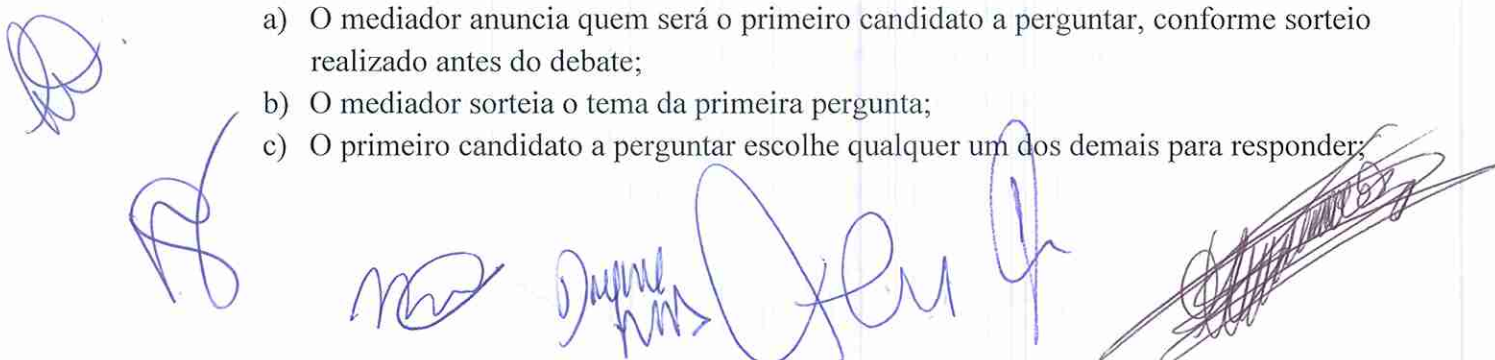 a) O mediador anuncia quem será o primeiro candidato a perguntar, conforme sorteio
realizado antes do debate;
b) O mediador sorteia o tema da primeira pergunta;
c) O primeiro candidato a perguntar escolhe qualquer um dos demais para responder;